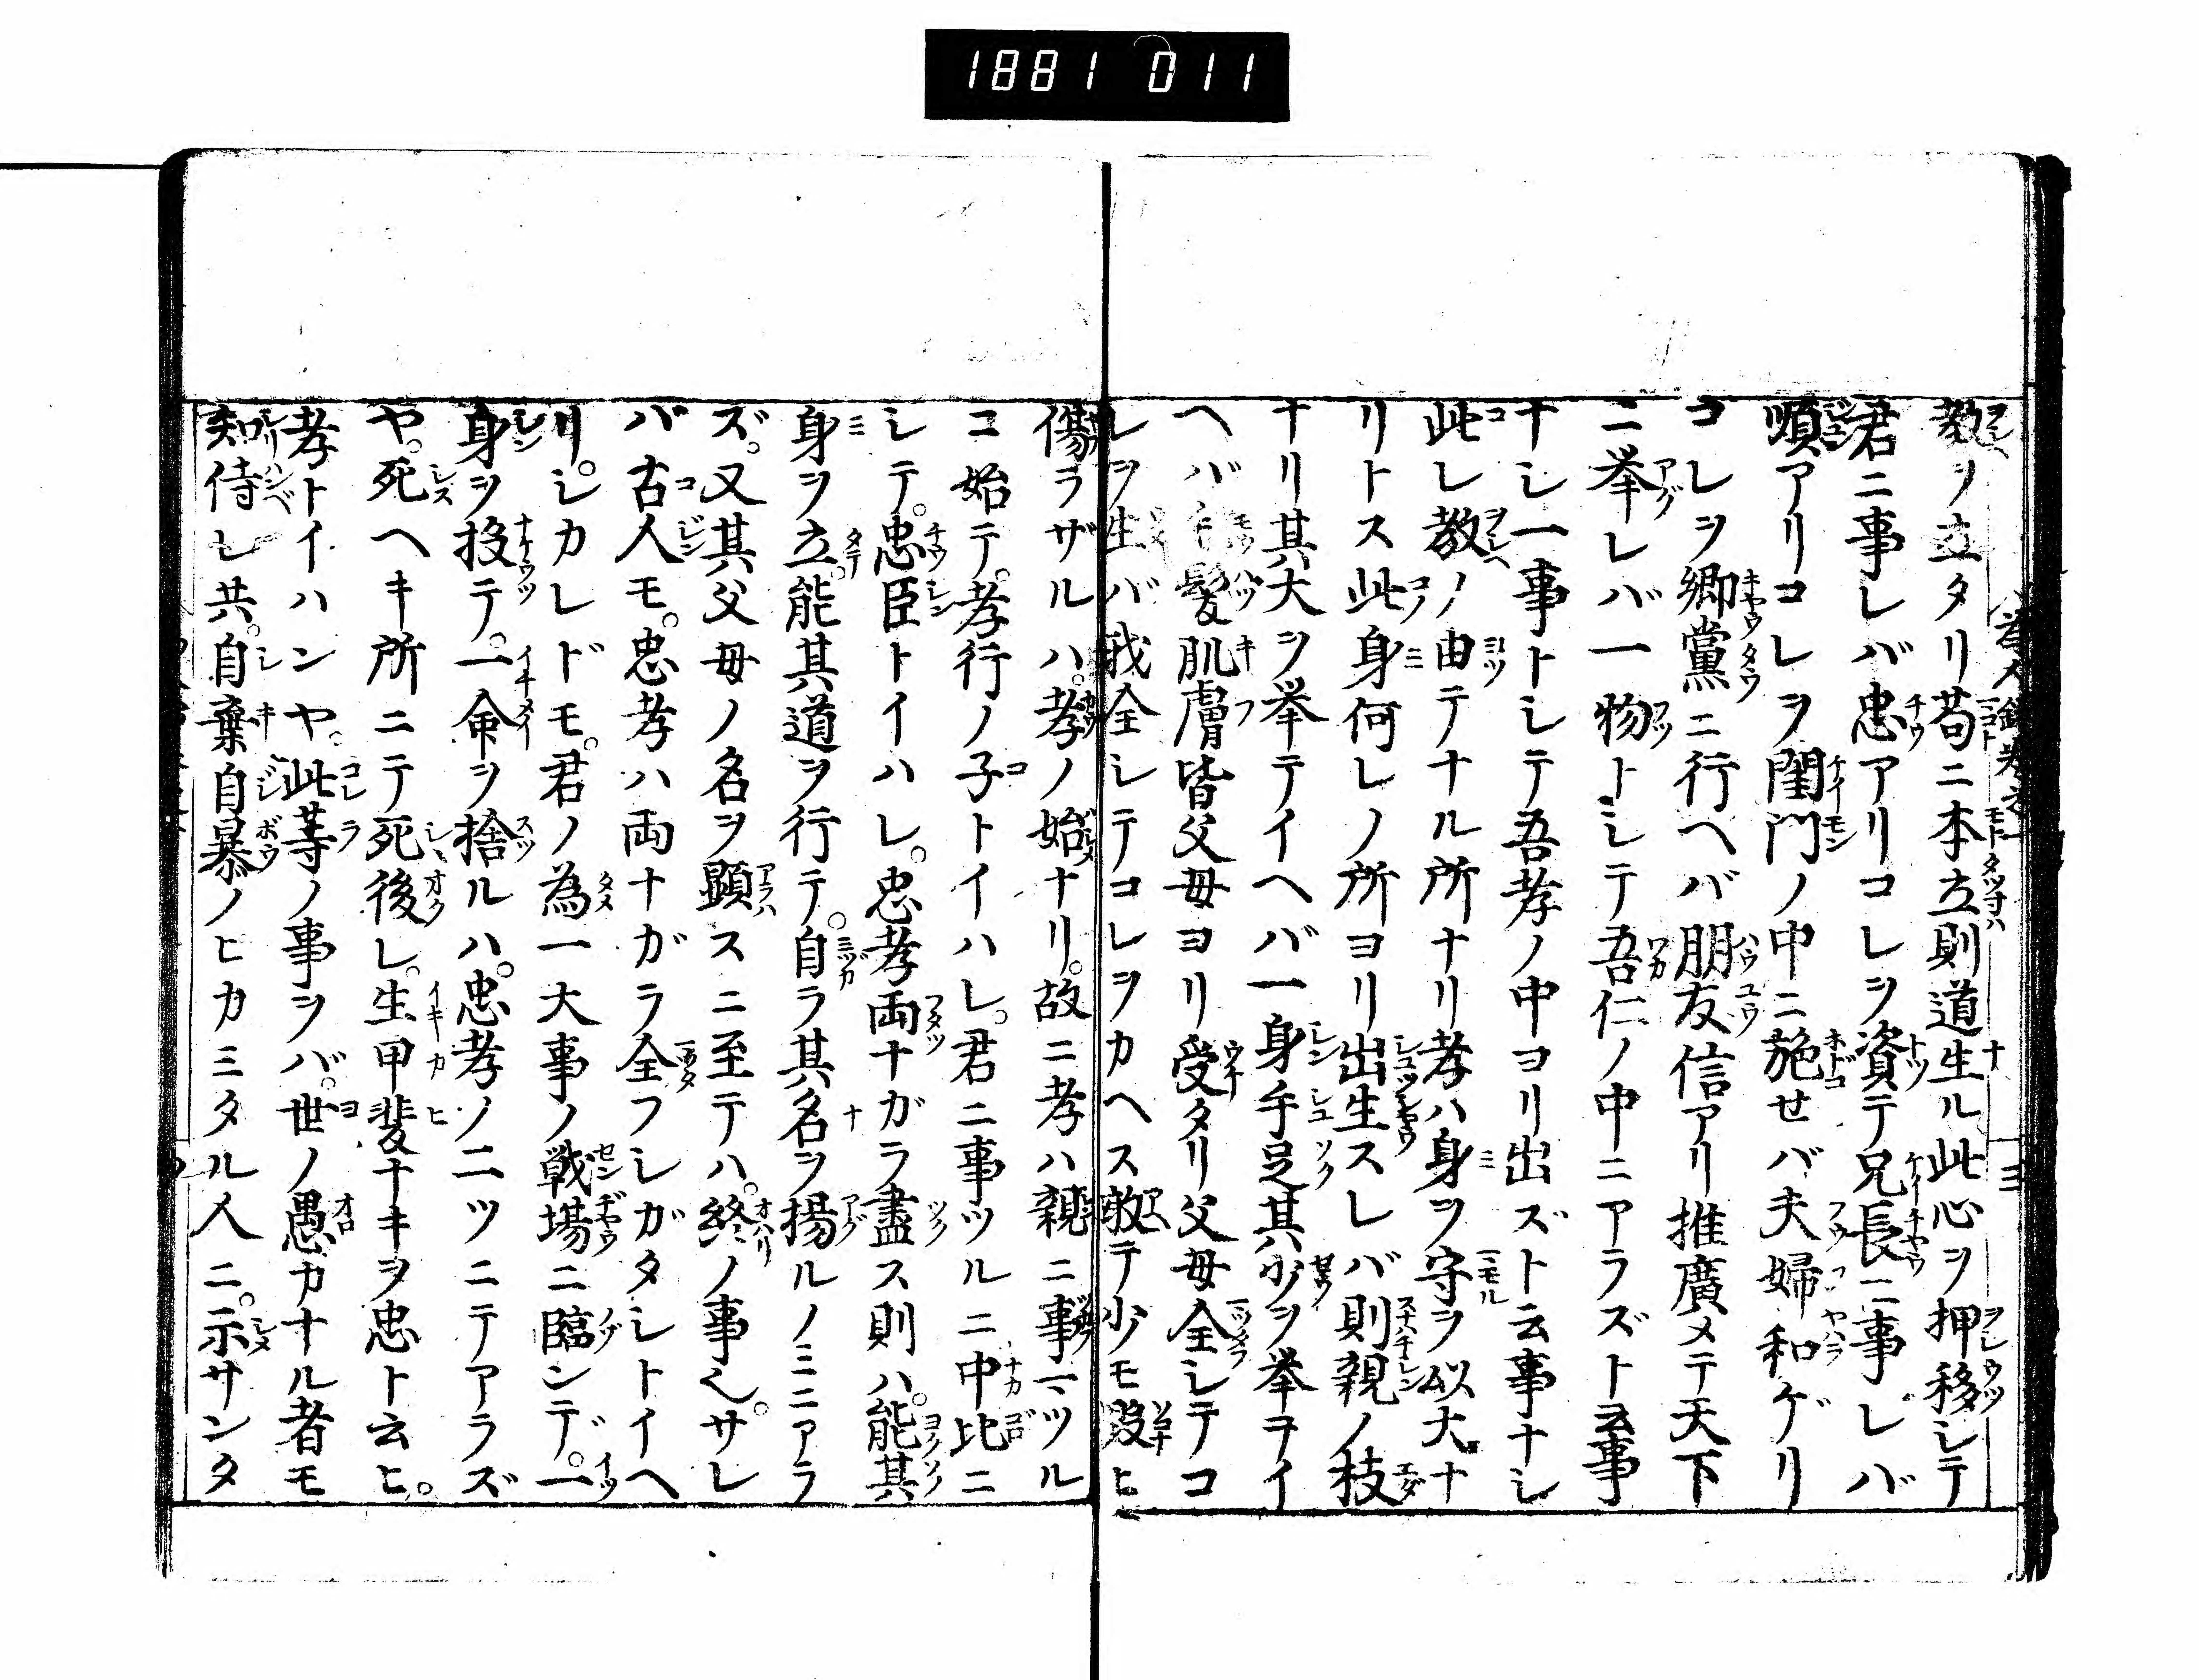 1881 011
教ヲ立タリ苟ニ本立則道生ル此心ヲ押移シテ
君ニ事レバ忠アリコレヲ資テ兄長ニ事レバ
順アリコレヲ閨門ノ中ニ施せバ夫婦和ゲリ
コレヲ郷黨ニ行ヘバ朋友信アリ推廣メテ天下
ニ挙レバ一物トシテ吾仁ノ中ニアラズト云事
ナシ一事トシテ吾孝ノ中ヨリ出ズト云事ナシ
此レ教ノ由テナル所ナリ孝ハ身ヲ守ヲ以大ナ
リトス此身何レノ所ヨリ出生スレバ則親ノ枝
ナリ其大ヲ挙テイヘバ一身手足其少ヲ挙テイ
ヘバ毛髪肌膚皆父母ヨリ受タリ父母全シテコ
レヲ生バ我全シテコレヲカヘス敢テ少モ毀ヒ
傷ラザルハ。孝ノ始ナリ。故ニ孝ハ親ニ事マツル
コ始テ。孝行ノ子トイハレ。君ニ事ツルニ中比ニ
シテ。忠臣トイハレ。忠孝両ナガラ盡ス則ハ。能其
身ヲ立。能其道ヲ行テ。自ラ其名ヲ揚ルノミニアラ
ズ。又其父母ノ名ヲ顕スニ至テハ。終ノ事也。サレ
バ古人モ。忠孝ハ両ナガラ全フシガタシトイヘ
リ。シカレドモ。君ノ為一大事ノ戦場ニ臨ンデ。一
身ヲ投テ。一命ヲ捨ルハ。忠孝ノ二ツニテアラズ
ヤ。死ヘキ所ニテ死後レ。生甲斐ナキヲ忠ト云ヒ。
孝トイハンヤ。此等ノ事ヲバ。世ノ愚カナル者モ
知侍レ共。自棄自暴ノヒカミタル人ニ。示サンタ